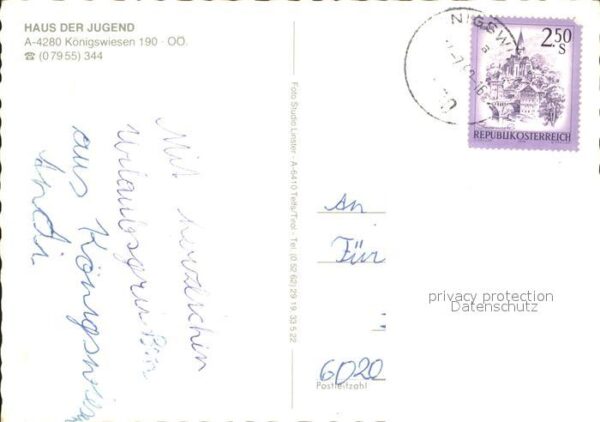 HAUS DER JUGEND
A-4280 Königswiesen 190 · OÖ.
☎ (07955) 344
Mit herzlichen
Urlaubsgrüßen
aus Königswiesen
Andi
Foto Studio Lindner · A-6410 Telfs/Tirol · Tel. (0 52 62) 29 19, 33 5 22
NIGSWI
2.50
S
REPUBLIK ÖSTERREICH
An
Für
privacy protection
Datenschutz
6020
Postleitzahl